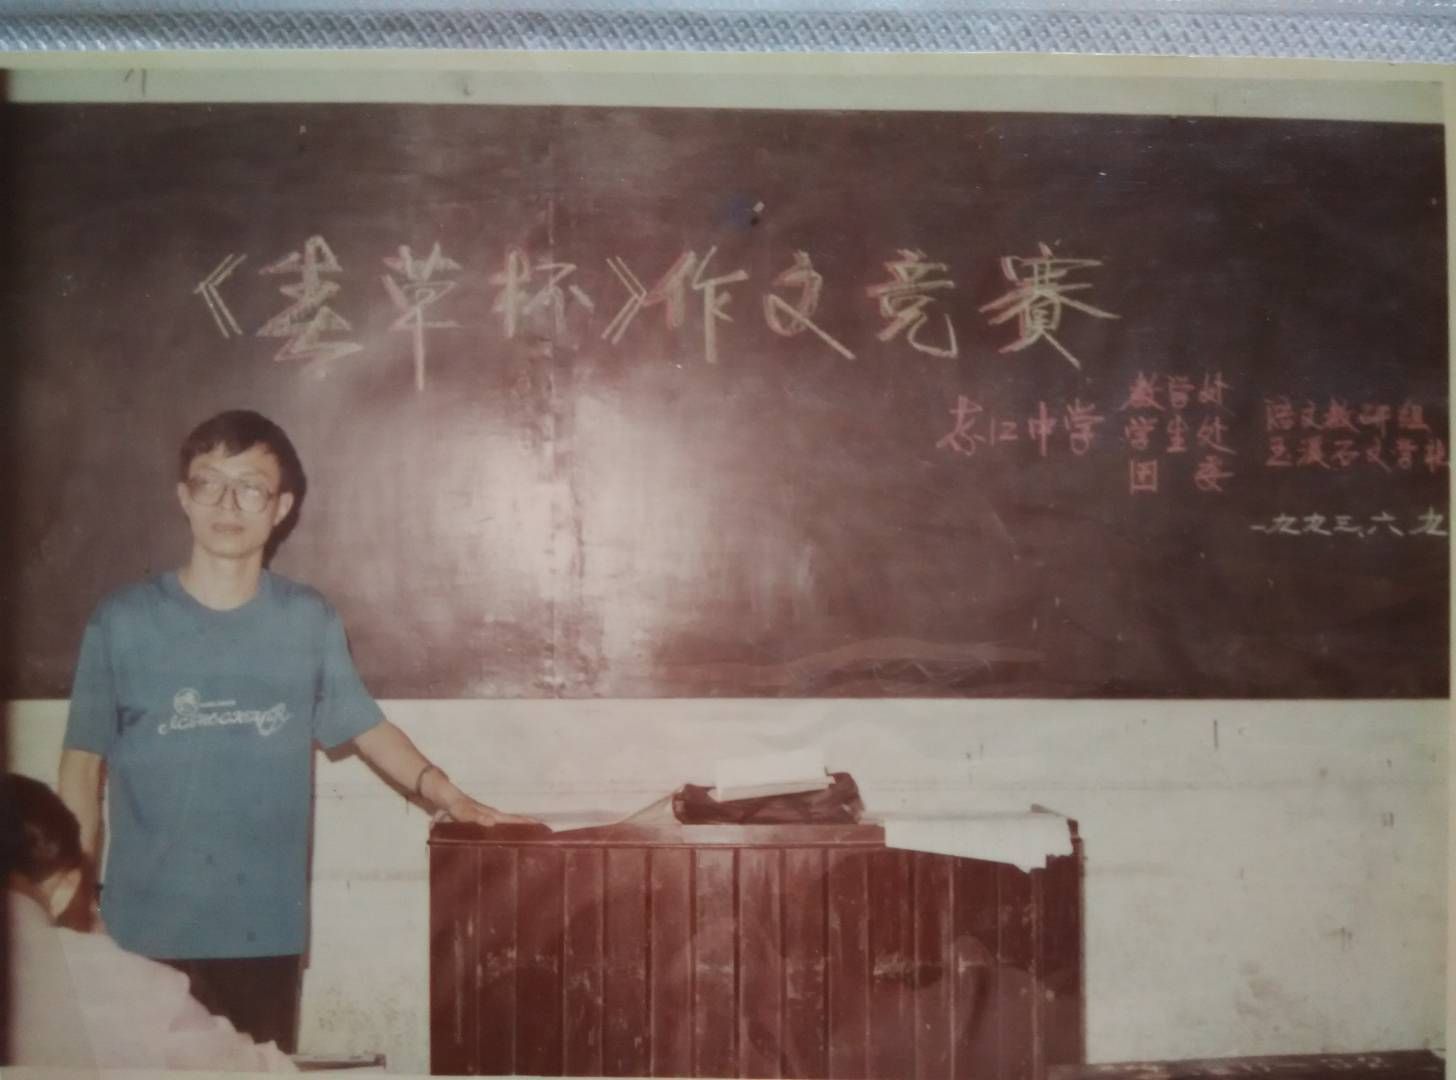 《春草杯》作文竞賽
东江中学
教学处
学生处
团 委
语文教研组
玉溪石文学社
一九九三、六、九